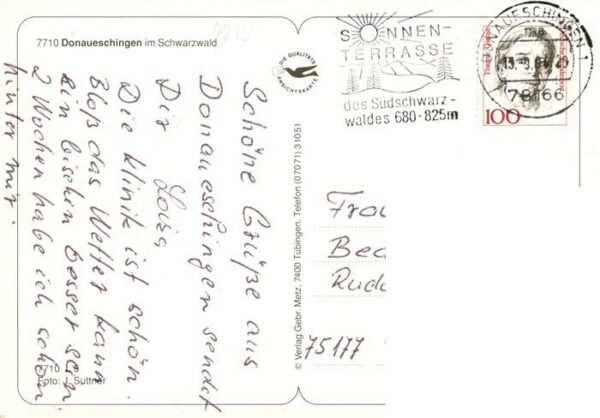 7710 Donaueschingen im Schwarzwald
Schöne Grüße aus
Donaueschingen sendet
Dir Luise
Die Klinik ist schön.
Bloß das Wetter kann
ein bischen besser sein.
2 Wochen habe ich schon
hinter mir.
7710
Foto: J. Suttner
DIE QUALITÄTS
ANSICHTSKARTE
© Verlag Gebr. Metz, 7400 Tübingen, Telefon (07071) 31051
SONNEN-
TERRASSE
des Südschwarz-
waldes 680-825m
DONAUESCHINGEN 1
78166
100
Frau
Rudo
75177